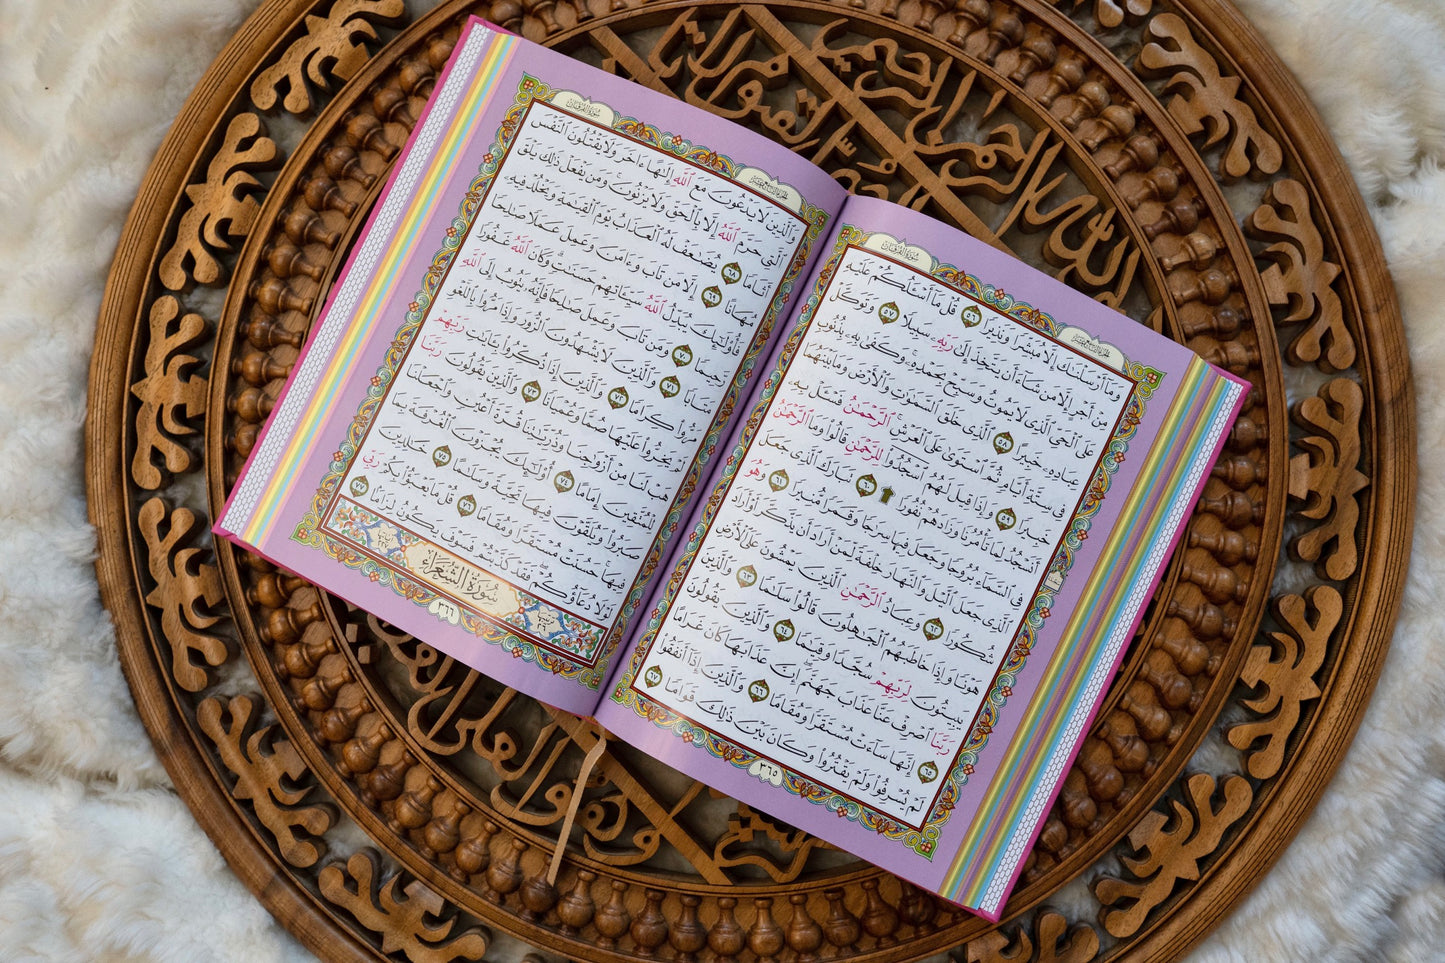 سُورَةُ الفُرْقَان
الجُزْءُ التَّاسِعَ عَشَرَ
وَمَآ أَرْسَلْنَٰكَ إِلَّا مُبَشِّرًا وَنَذِيرًا ٥٦ قُلْ مَآ أَسْـَٔلُكُمْ عَلَيْهِ
مِنْ أَجْرٍ إِلَّا مَن شَآءَ أَن يَتَّخِذَ إِلَىٰ رَبِّهِۦ سَبِيلًا ٥٧ وَتَوَكَّلْ
عَلَى ٱلْحَىِّ ٱلَّذِى لَا يَمُوتُ وَسَبِّحْ بِحَمْدِهِۦ ۚ وَكَفَىٰ بِهِۦ بِذُنُوبِ
عِبَادِهِۦ خَبِيرًا ٥٨ ٱلَّذِى خَلَقَ ٱلسَّمَٰوَٰتِ وَٱلْأَرْضَ وَمَا بَيْنَهُمَا
فِى سِتَّةِ أَيَّامٍ ثُمَّ ٱسْتَوَىٰ عَلَى ٱلْعَرْشِ ۚ ٱلرَّحْمَٰنُ فَسْـَٔلْ بِهِۦ
خَبِيرًا ٥٩ وَإِذَا قِيلَ لَهُمُ ٱسْجُدُوا۟ لِلرَّحْمَٰنِ قَالُوا۟ وَمَا ٱلرَّحْمَٰنُ
أَنَسْجُدُ لِمَا تَأْمُرُنَا وَزَادَهُمْ نُفُورًا ۩ ٦٠ تَبَارَكَ ٱلَّذِى جَعَلَ
فِى ٱلسَّمَآءِ بُرُوجًا وَجَعَلَ فِيهَا سِرَٰجًا وَقَمَرًا مُّنِيرًا ٦١ وَهُوَ
ٱلَّذِى جَعَلَ ٱلَّيْلَ وَٱلنَّهَارَ خِلْفَةً لِّمَنْ أَرَادَ أَن يَذَّكَّرَ أَوْ أَرَادَ
شُكُورًا ٦٢ وَعِبَادُ ٱلرَّحْمَٰنِ ٱلَّذِينَ يَمْشُونَ عَلَى ٱلْأَرْضِ
هَوْنًا وَإِذَا خَاطَبَهُمُ ٱلْجَٰهِلُونَ قَالُوا۟ سَلَٰمًا ٦٣ وَٱلَّذِينَ
يَبِيتُونَ لِرَبِّهِمْ سُجَّدًا وَقِيَٰمًا ٦٤ وَٱلَّذِينَ يَقُولُونَ
رَبَّنَا ٱصْرِفْ عَنَّا عَذَابَ جَهَنَّمَ ۖ إِنَّ عَذَابَهَا كَانَ غَرَامًا
٦٥ إِنَّهَا سَآءَتْ مُسْتَقَرًّا وَمُقَامًا ٦٦ وَٱلَّذِينَ إِذَآ أَنفَقُوا۟
لَمْ يُسْرِفُوا۟ وَلَمْ يَقْتُرُوا۟ وَكَانَ بَيْنَ ذَٰلِكَ قَوَامًا ٦٧
٣٦٥
سُورَةُ الفُرْقَان
الجُزْءُ التَّاسِعَ عَشَرَ
وَٱلَّذِينَ لَا يَدْعُونَ مَعَ ٱللَّهِ إِلَٰهًا ءَاخَرَ وَلَا يَقْتُلُونَ ٱلنَّفْسَ
ٱلَّتِى حَرَّمَ ٱللَّهُ إِلَّا بِٱلْحَقِّ وَلَا يَزْنُونَ ۚ وَمَن يَفْعَلْ ذَٰلِكَ يَلْقَ
أَثَامًا ٦٨ يُضَٰعَفْ لَهُ ٱلْعَذَابُ يَوْمَ ٱلْقِيَٰمَةِ وَيَخْلُدْ فِيهِۦ
مُهَانًا ٦٩ إِلَّا مَن تَابَ وَءَامَنَ وَعَمِلَ عَمَلًا صَٰلِحًا
فَأُو۟لَٰٓئِكَ يُبَدِّلُ ٱللَّهُ سَيِّـَٔاتِهِمْ حَسَنَٰتٍ ۗ وَكَانَ ٱللَّهُ غَفُورًا
رَّحِيمًا ٧٠ وَمَن تَابَ وَعَمِلَ صَٰلِحًا فَإِنَّهُۥ يَتُوبُ إِلَى ٱللَّهِ
مَتَابًا ٧١ وَٱلَّذِينَ لَا يَشْهَدُونَ ٱلزُّورَ وَإِذَا مَرُّوا۟ بِٱللَّغْوِ
مَرُّوا۟ كِرَامًا ٧٢ وَٱلَّذِينَ إِذَا ذُكِّرُوا۟ بِـَٔايَٰتِ رَبِّهِمْ
لَمْ يَخِرُّوا۟ عَلَيْهَا صُمًّا وَعُمْيَانًا ٧٣ وَٱلَّذِينَ يَقُولُونَ رَبَّنَا
هَبْ لَنَا مِنْ أَزْوَٰجِنَا وَذُرِّيَّٰتِنَا قُرَّةَ أَعْيُنٍ وَٱجْعَلْنَا
لِلْمُتَّقِينَ إِمَامًا ٧٤ أُو۟لَٰٓئِكَ يُجْزَوْنَ ٱلْغُرْفَةَ بِمَا
صَبَرُوا۟ وَيُلَقَّوْنَ فِيهَا تَحِيَّةً وَسَلَٰمًا ٧٥ خَٰلِدِينَ
فِيهَا ۚ حَسُنَتْ مُسْتَقَرًّا وَمُقَامًا ٧٦ قُلْ مَا يَعْبَؤُا۟ بِكُمْ رَبِّى
لَوْلَا دُعَآؤُكُمْ ۖ فَقَدْ كَذَّبْتُمْ فَسَوْفَ يَكُونُ لِزَامًۢا ٧٧
سُورَةُ الشُّعَرَاءِ
٣٦٦